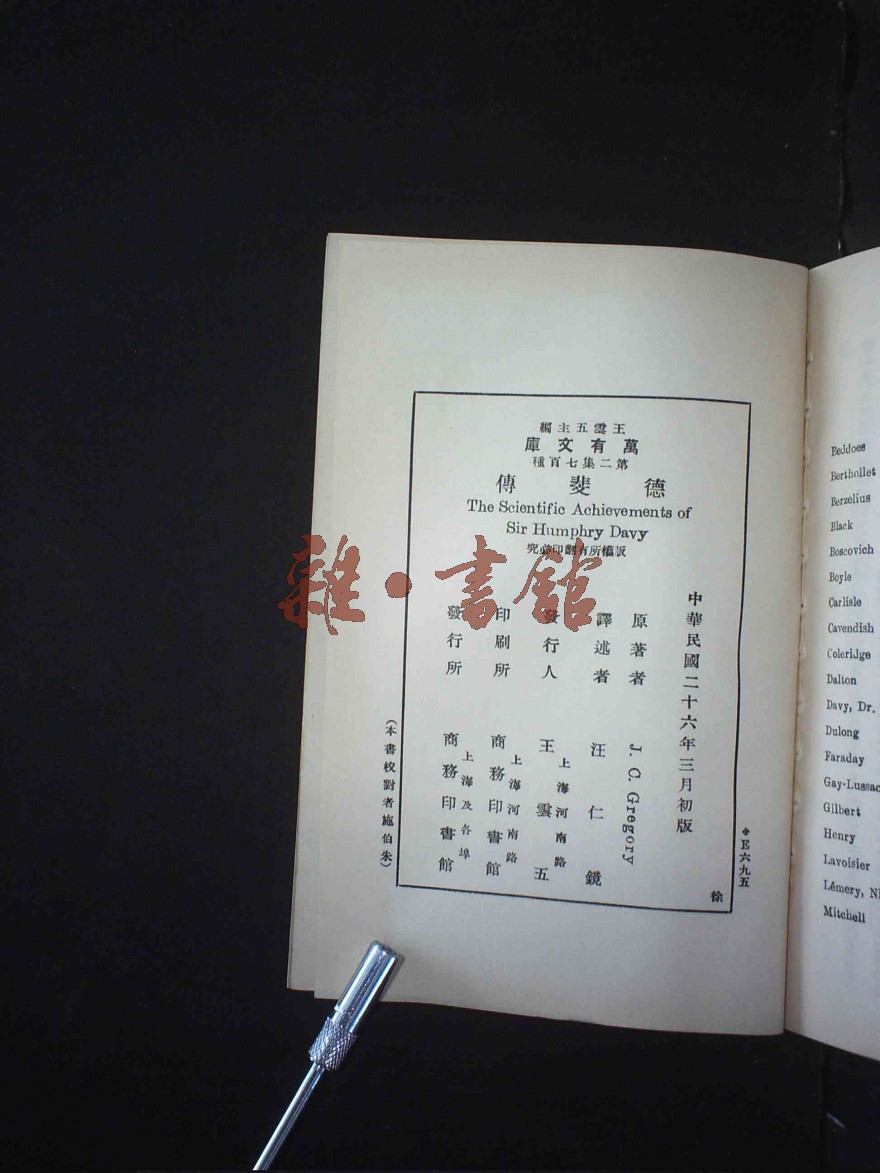 王雲五主編
萬有文庫
第二集七百種
德斐傳
The Scientific Achievements of
Sir Humphry Davy
版權所有翻印必究
中華民國二十六年三月初版
原著者 J. C. Gregory
譯述者 汪仁鏡
發行人 王雲五
上海河南路
印刷所 商務印書館
上海河南路
發行所 商務印書館
上海及各埠
(本書校對者施伯朱)
✥E六九五
徐
雜·書館
Beddoes
Berthollet
Berzelius
Black
Boscovich
Boyle
Carlisle
Cavendish
Coleridge
Dalton
Davy, Dr.
Dulong
Faraday
Gay-Lussac
Gilbert
Henry
Lavoisier
Lémery, Ni
Mitchell